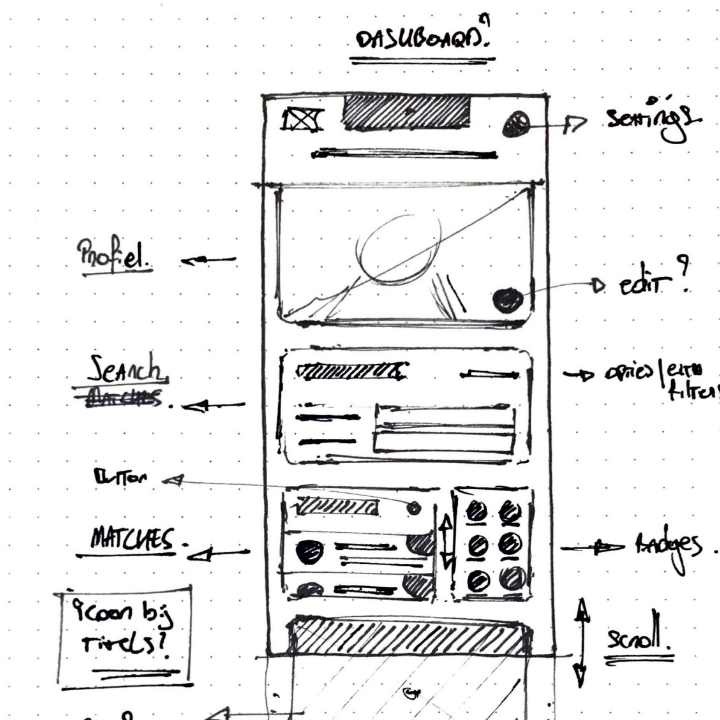 DASHBOARD.
Settings
Profiel.
edit?
Search
MATCHES.
opties/extra
filters
Button
MATCHES.
Badges.
icoon bij
titels?
Scroll.